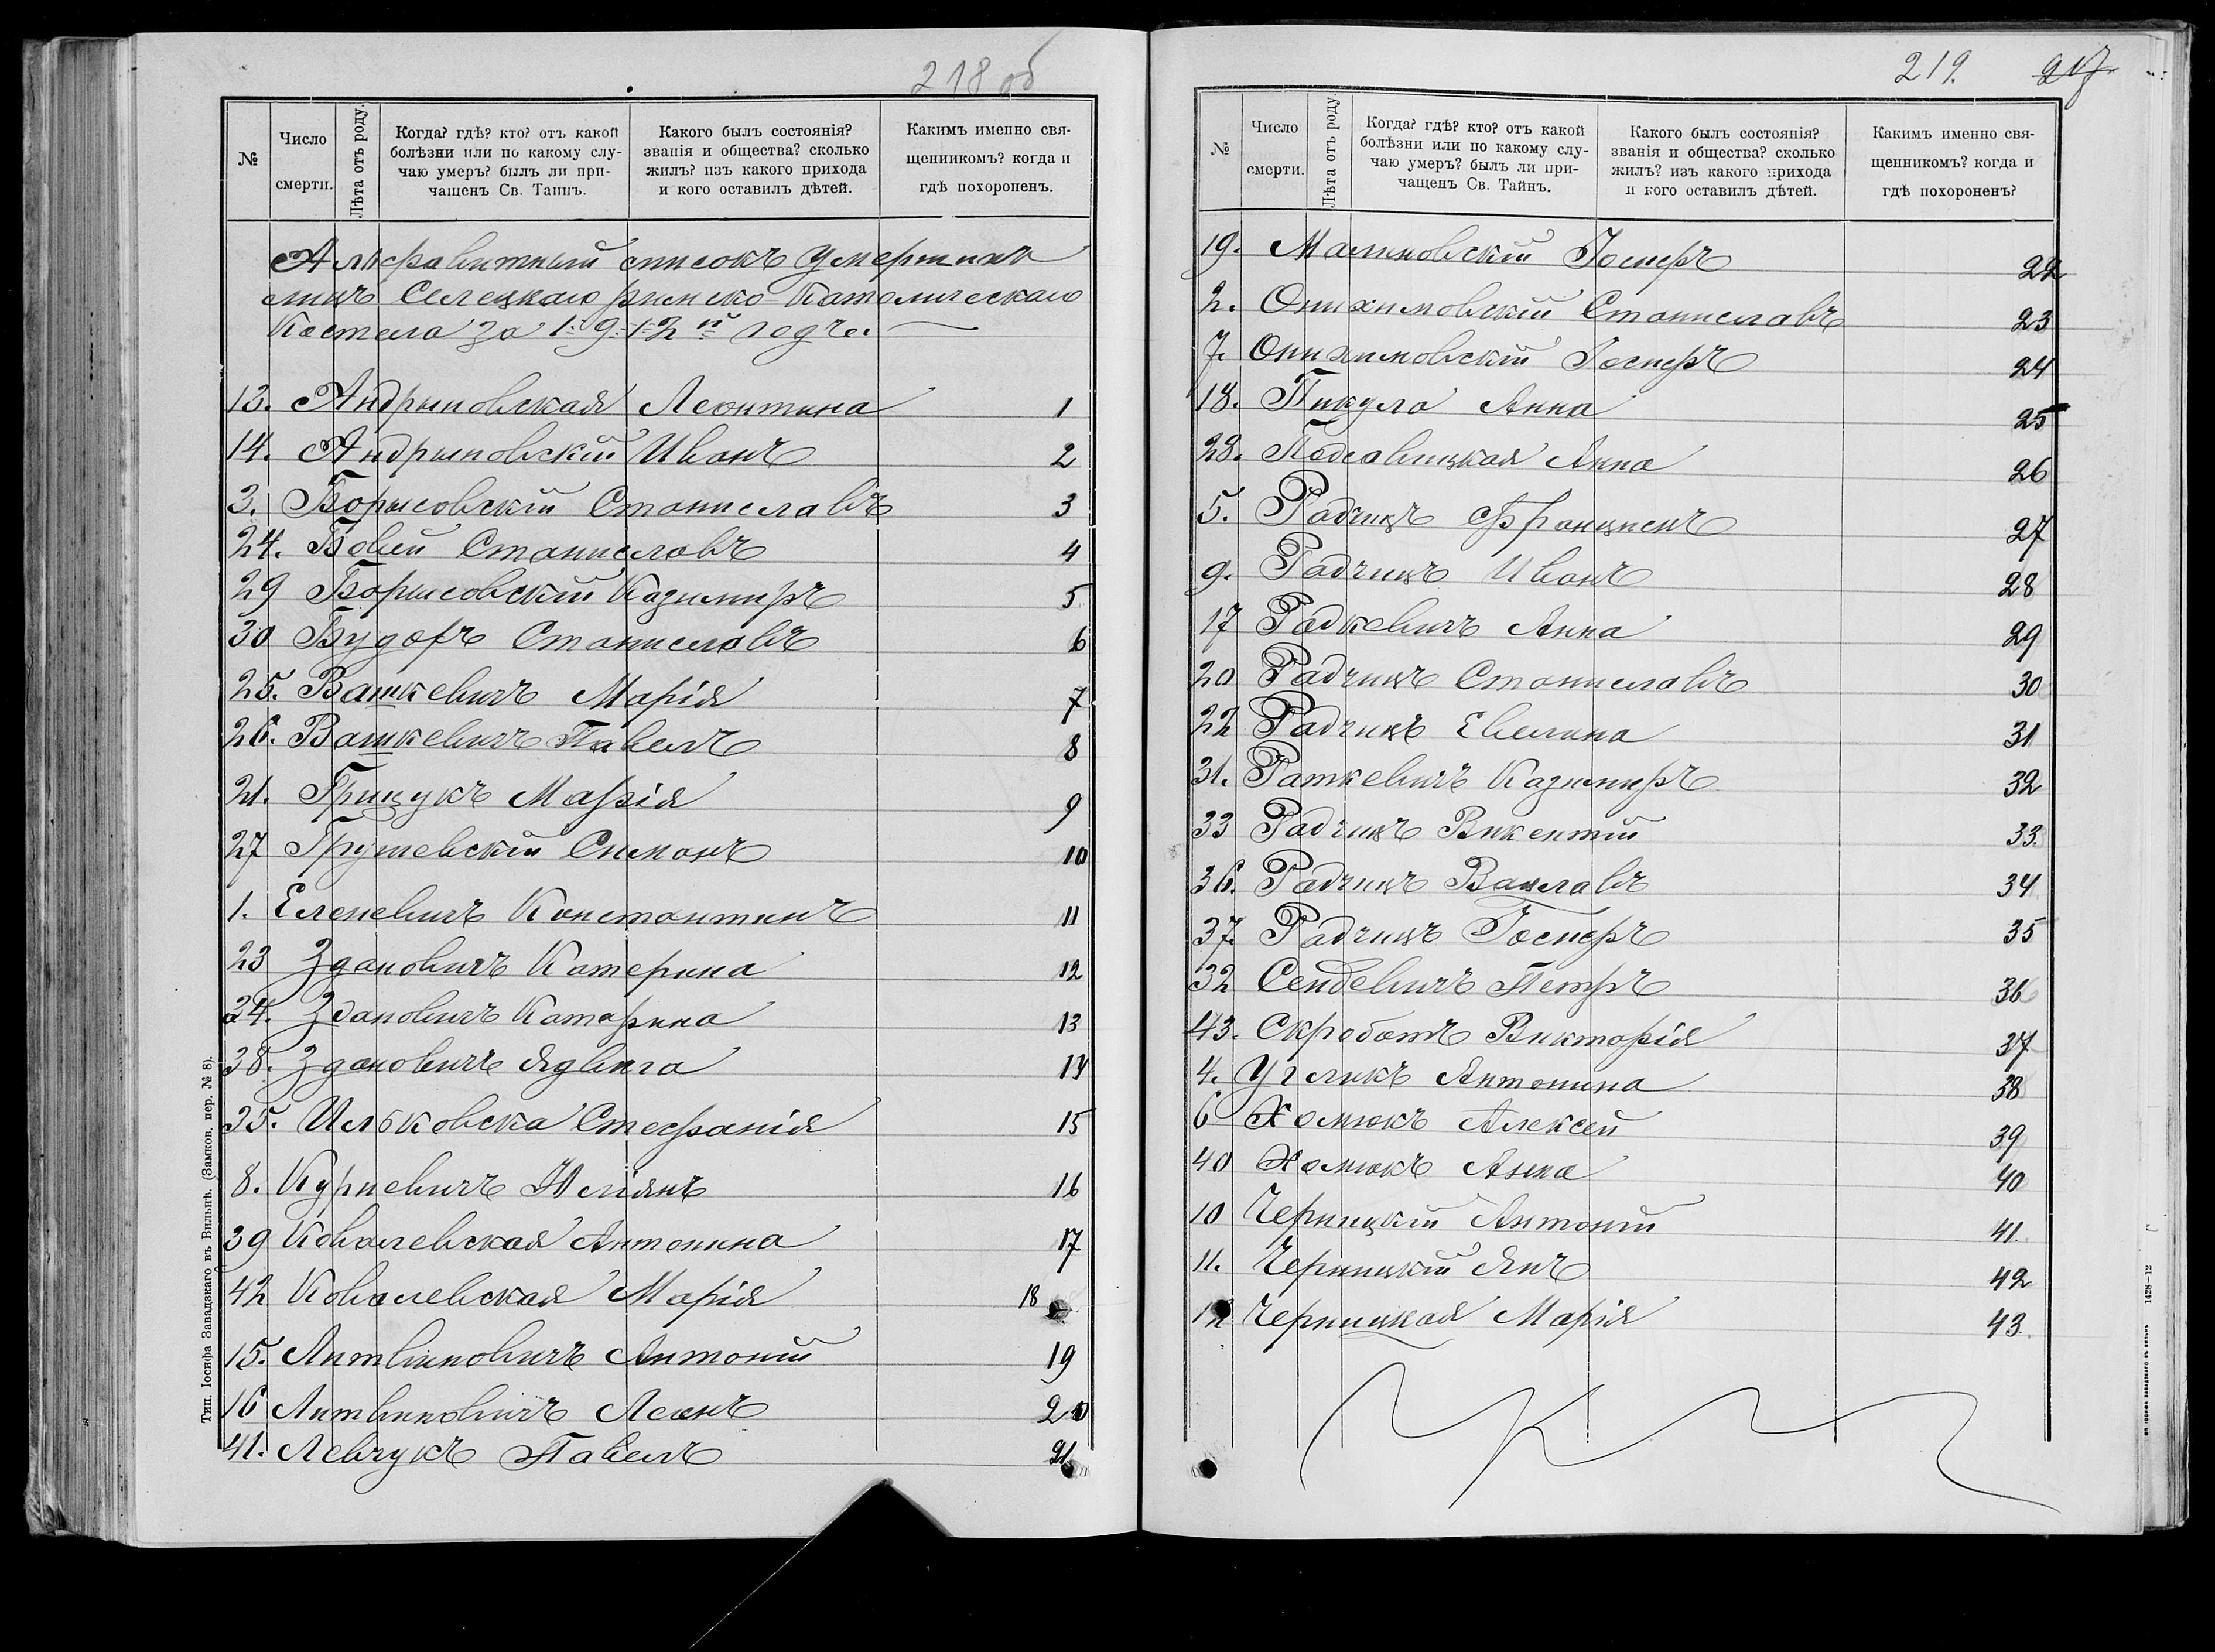 218 об
№
Число смерти.
Лѣта отъ роду.
Когда? гдѣ? кто? отъ какой
болѣзни или по какому слу-
чаю умеръ? былъ ли при-
чащенъ Св. Таинъ.
Какого былъ состоянія?
званія и общества? сколько
жилъ? изъ какого прихода
и кого оставилъ дѣтей.
Какимъ именно свя-
щенникомъ? когда и
гдѣ похороненъ.
Альфавитный списокъ умершихъ
лицъ Селецкаго римско-Католическаго
Костела за 1912й годъ.
13. Андрыповская Леонтина 1
14. Андрыповскій Иванъ 2
3. Борысовскій Станиславъ 3
24. Бовей Станиславъ 4
29 Борысовскій Казимиръ 5
30 Бударъ Станиславъ 6
25. Вашкевичъ Марія 7
26. Вашкевичъ Павелъ 8
21. Грицукъ Марія 9
27 Грушевскій Симонъ 10
1. Еленевичъ Константинъ 11
23 Здановичъ Катерина 12
34. Здановичъ Катарина 13
38. Здановичъ Ядвига 14
35. Ильковска Стефанія 15
8. Курневичъ Юліянъ 16
39 Ковалевская Антонина 17
42 Ковалевская Марія 18
15. Литвиновичъ Антоній 19
16 Литвиновичъ Леонъ 20
41. Левчукъ Павелъ 21
Тип. Іосифа Завадзкаго въ Вильнѣ. (Замков. пер. № 8).
219. 217
№
Число смерти.
Лѣта отъ роду.
Когда? гдѣ? кто? отъ какой
болѣзни или по какому слу-
чаю умеръ? былъ ли при-
чащенъ Св. Тайнъ.
Какого былъ состоянія?
званія и общества? сколько
жилъ? изъ какого прихода
и кого оставилъ дѣтей.
Какимъ именно свя-
щенникомъ? когда и
гдѣ похороненъ?
19. Малиновскій Іосифъ 22
2. Онихимовскій Станиславъ 23
7. Онихимовскій Іосифъ 24
18. Пикула Анна 25
28. Подсавицкая Анна 26
5. Радчицъ Францискъ 27
9. Радчицъ Иванъ 28
17 Радкевичъ Анна 29
20 Радчицъ Станиславъ 30
22 Радчицъ Евелина 31
31. Раткевичъ Казимиръ 32
33 Радчицъ Викентій 33.
36. Радчицъ Вацлавъ 34
37. Радчицъ Іосифъ 35
32 Сендевичъ Петръ 36
43. Скробатъ Викторія 37
4. Угликъ Антонина 38
6 Хомюкъ Алексей 39
40 Хомюкъ Анна 40
10 Черницкій Антоній 41.
11. Черницкій Янъ 42
12 Черницкая Марія 43.
1428—12